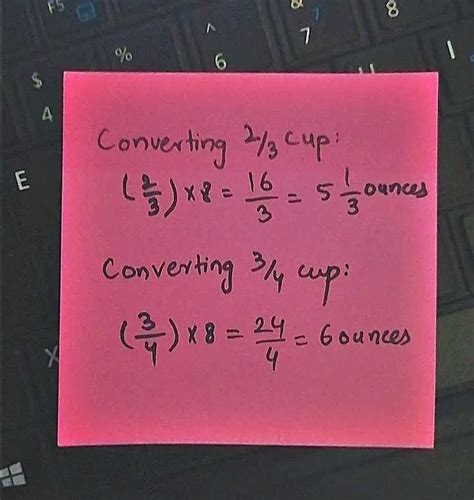 F5
&
7
8
^
7
%
6
$
4
E
X
Converting 2/3 cup:
(2/3) × 8 = 16/3 = 5 1/3 ounces
Converting 3/4 cup:
(3/4) × 8 = 24/4 = 6 ounces